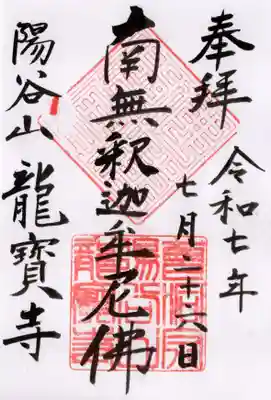 奉拝
令和七年
七月二十六日
南無釈迦牟尼佛
陽谷山
龍寶寺